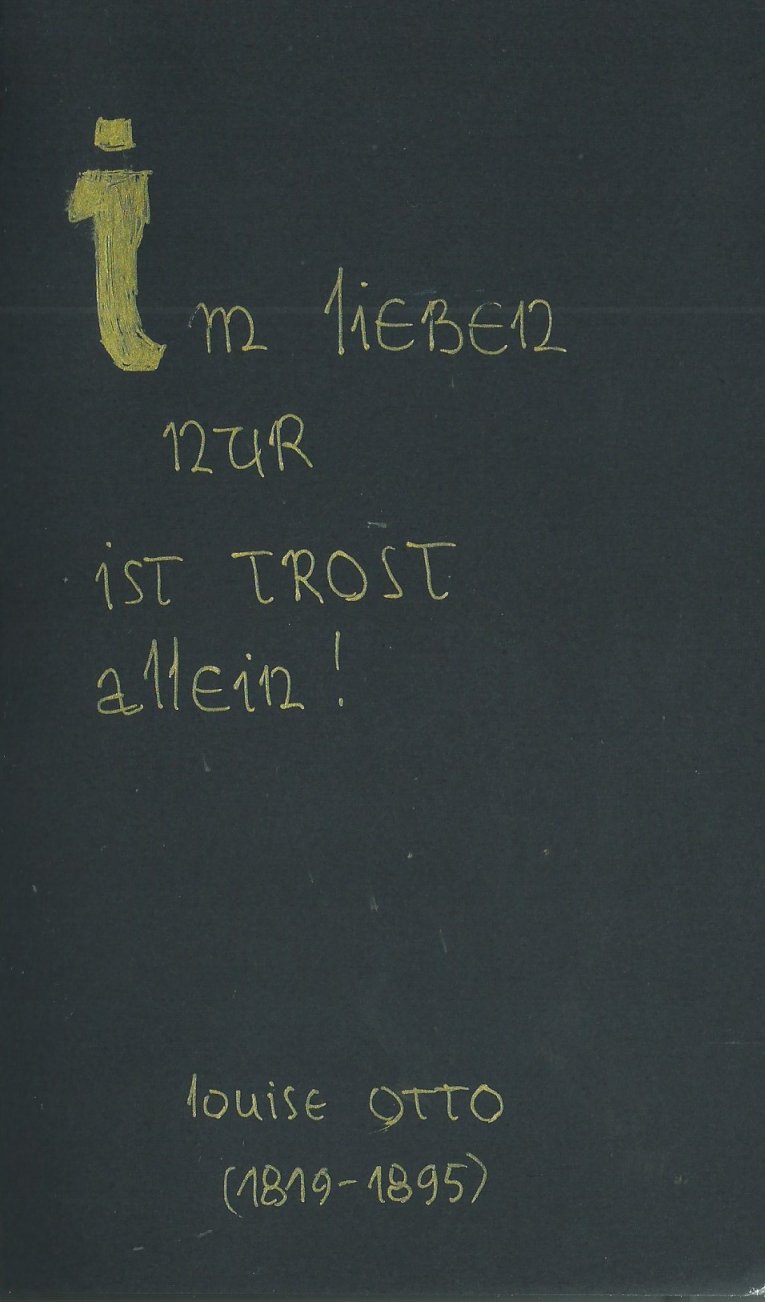 im liEBEN
NUR
ist TROST
allein!
louise OTTO
(1819-1895)